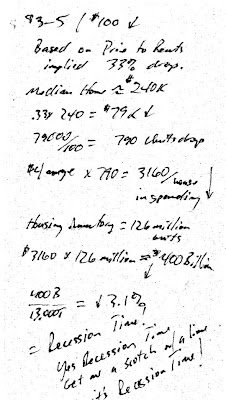 $3-5 / $100 ↓
Based on Price to Rents
implied 33% drop.
Median Home ≈ $240K
.33 x 240 = $79K ↓
79000/100 = 790 units drop
$4 average x 790 = 3160/house ↓
in spending
Housing Inventory = 126 million
units
$3160 x 126 million = $400 Billion
↓
400B/13.000T = ↓3.1%
= Recession Time.
Yes Recession Time
Get me a scotch w/ a lime
it's Recession Time!